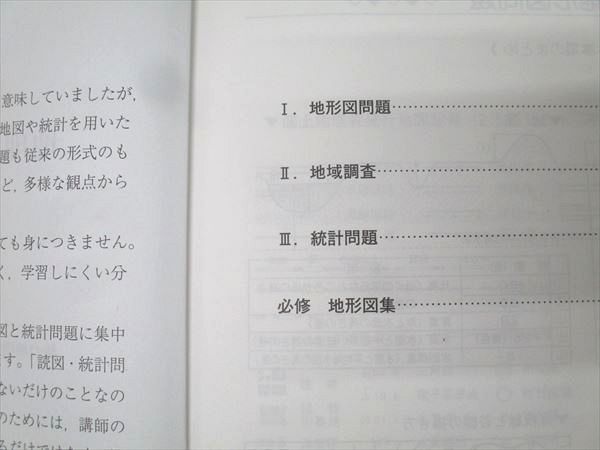 意味していましたが,
地図や統計を用いた
題も従来の形式のも
ど, 多様な観点から
ても身につきません。
く, 学習しにくい分
図と統計問題に集中
す。「読図・統計問
ないだけのことなの
のためには, 講師の
Ⅰ. 地形図問題
Ⅱ. 地域調査
Ⅲ. 統計問題
必修 地形図集